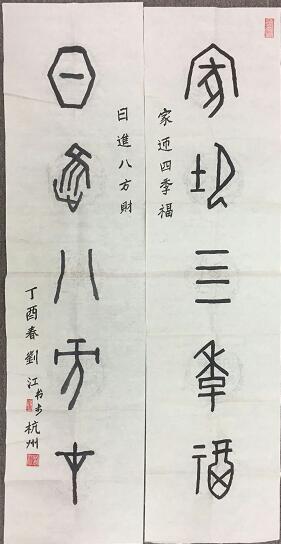 家迎四季福
家迎四季福
日進八方財
日進八方財
丁酉春劉江书於杭州